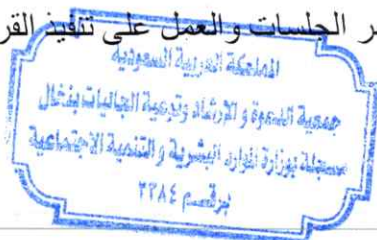 ر الجلسات والعمل على تنفيذ القر
المملكة العربية السعودية
جمعية الدعوة و الإرشاد وتوعية الجاليات بنخال
مسجلة بوزارة الموارد البشرية و التنمية الاجتماعية
برقم ٢٢٨٤